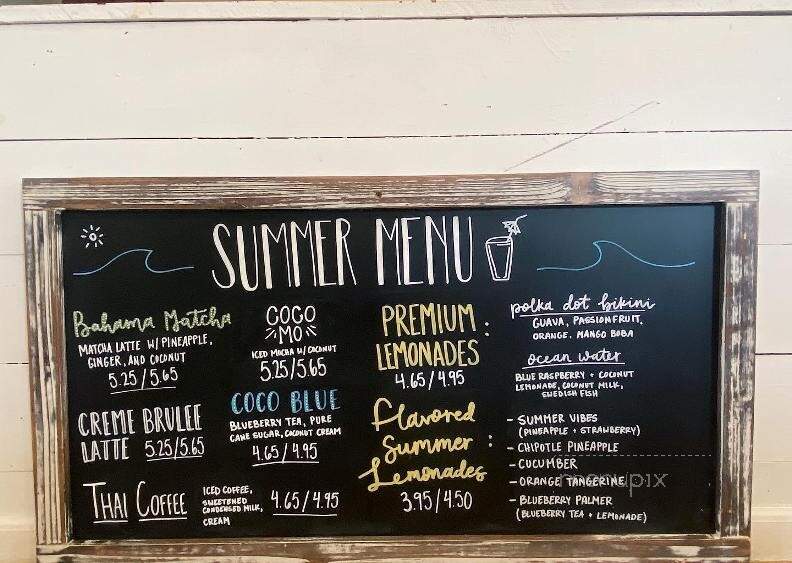 SUMMER MENU
Bahama Matcha
MATCHA LATTE W/ PINEAPPLE,
GINGER, AND COCONUT
5.25/5.65
CREME BRULEE
LATTE 5.25/5.65
THAI COFFEE
ICED COFFEE,
SWEETENED
CONDENSED MILK,
CREAM
4.65/4.95
COCO
MO
ICED MOCHA W/ COCONUT
5.25/5.65
COCO BLUE
BLUEBERRY TEA, PURE
CANE SUGAR, COCONUT CREAM
4.65/4.95
PREMIUM
LEMONADES :
4.65/4.95
Flavored
Summer :
Lemonades
3.95/4.50
polka dot bikini
GUAVA, PASSIONFRUIT,
ORANGE, MANGO BOBA
ocean water
BLUE RASPBERRY + COCONUT
LEMONADE, COCONUT MILK,
SWEDISH FISH
- SUMMER VIBES
(PINEAPPLE + STRAWBERRY)
- CHIPOTLE PINEAPPLE
- CUCUMBER
- ORANGE TANGERINE
- BLUEBERRY PALMER
(BLUEBERRY TEA + LEMONADE)
menupix